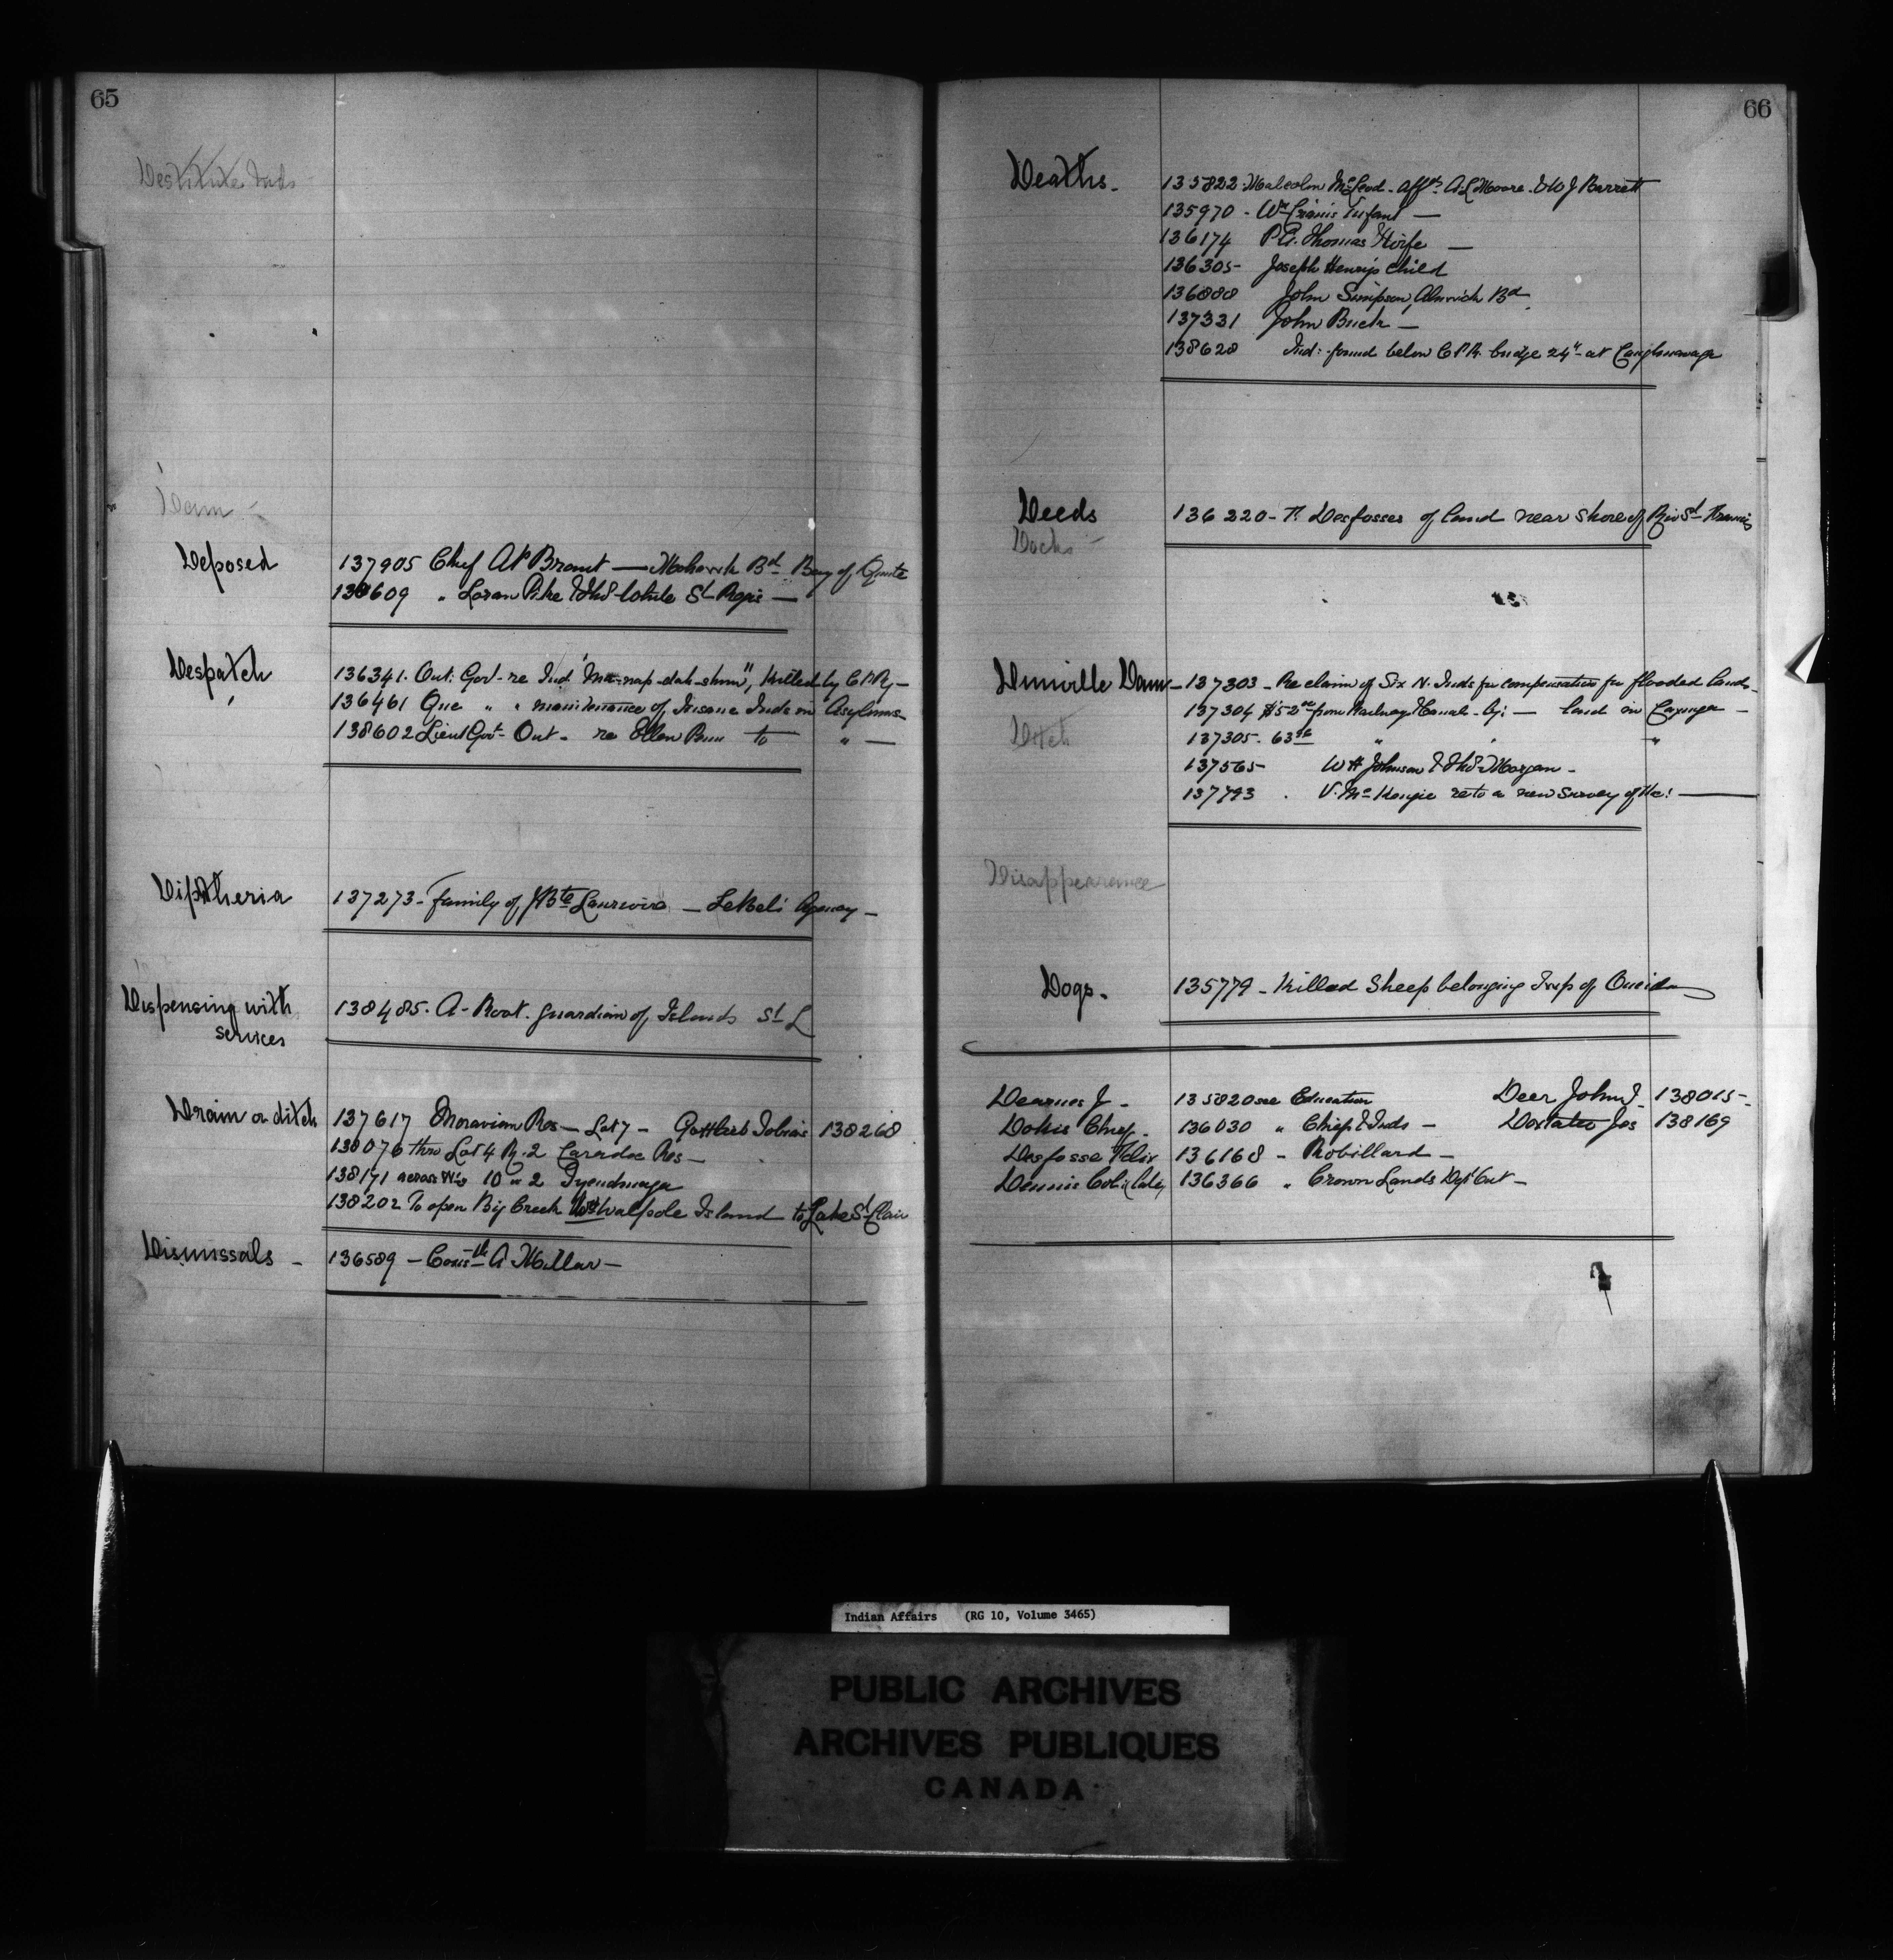 65
Destitute Inds
Dam -
Deposed
137905 Chief A P Brant — Mohawk Bd Bay of Quinte
138609 " Loran Pike & Thos White St Regis —
Despatch
136341. Ont: Gov- re Ind "Ma-nap-dah-shun", killed by C P Ry -
136461 Que " " maintenance of Insane Inds in Asylums -
138602 Lieut Govt- Ont- re Ellen Penn to " —
Diptheria
137273 - Family of J Bte - LeBel's Agency -
Dispensing with
services
138485. A- Root. guardian of Islands St L
Drain or ditch
137617 Moravian Res - Lot 7 - Gottlieb Tobias 138268
138076 thro Lot 4 R. 2 Caradoc Res -
138171 across N½ 10 " 2 Tyendinaga
138202 To open Big Creek Walpole Island to Lake St Clair
Dismissals -
136589 - A Millar -
66
Deaths.
135822. Malcolm McLeod - affts. A. L Moore. & W J Barrett
135970 - Wm infant —
136174 P. E. Thomas' Wife —
136305- Joseph Henry's child
136888 John Simpson, Alnwick Bd
137331 John Buck —
138628 Ind: found below C P R. bridge 24" at Caughnawaga
Deeds
136220 - T. Desfosses of land near shore of Riv St Francis
Docks -
Dunville Dam - 137303 - Re claim of Six N. Inds for compensation for flooded lands -
137304 $52 from Railways & Canals - by: — land in Cayuga -
Ditch
137305. 63 " " "
137565- W H Johnson & Thos Morgan -
137793 . V. McKenzie re to a new survey of &c! —
Disappearance
Dogs.
135779 - Killed Sheep belonging Twp of Oneida
Dearnes J - 135820 see Education Deer John J. 138015-
Dokis Chief - 136030 " Chief & Inds - Dostater Jos 138169
Desfosse Felix 136168 - Robillard -
Dennis Col: 136366 " Crown Lands Dept Ont -
Indian Affairs (RG 10, Volume 3465)
PUBLIC ARCHIVES
ARCHIVES PUBLIQUES
CANADA